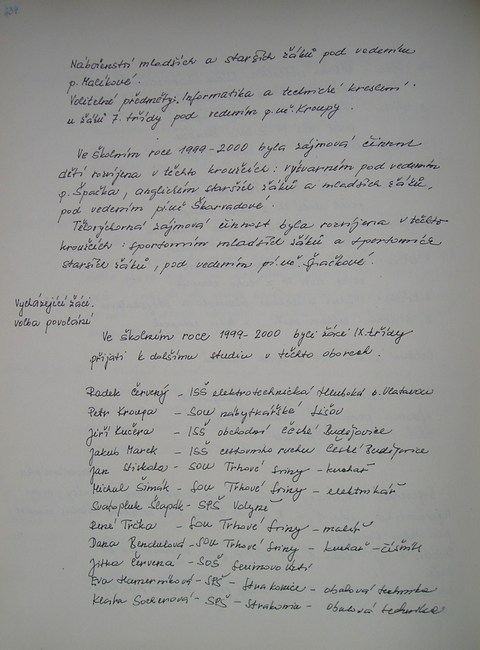 Náboženství mladších a starších žáků pod vedením
p. Malíkové.
Volitelné předměty: Informatika a technické kreslení
u žáků 7. třídy pod vedením p. uč. Kroupy.
Ve školním roce 1999-2000 byla zájmová činnost
dětí rozvíjena v těchto kroužcích: výtvarném pod vedením
p. Špačka, anglickém starších žáků a mladších žáků,
pod vedením pí. uč. Škarradové.
Tělovýchovná zájmová činnost byla rozvíjena v těchto
kroužcích: sportovním mladších žáků a sportovním
starších žáků, pod vedením pí. uč. Špačkové.
Vycházející žáci,
volba povolání
Ve školním roce 1999-2000 byli žáci IX. třídy
přijati k dalšímu studiu v těchto oborech.
Radek Červený - ISŠ elektrotechnická Hluboká n. Vltavou
Petr Kroupa - SOU nábytkářské Lišov
Jiří Kučera - ISŠ obchodní České Budějovice
Jakub Marek - ISŠ cestovního ruchu České Budějovice
Jan - SOU Trhové Sviny - kuchař
Michal Šimák - SOU Trhové Sviny - elektrikář
Svatopluk Šlapák - SPŠ Volyně
René Trčka - SOU Trhové Sviny - malíř
Dana Bendulová - SOU Trhové Sviny - kuchař - číšník
Jitka Červená - SOŠ Sezimovo Ústí
Eva - SPŠ - Strakonice - obalová technika
- SPŠ - Strakonice - obalová technika